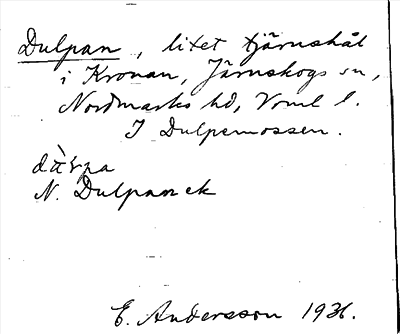 Dulpan, litet tjärnshål
i Kronan, Järnskogs sn,
Nordmarks hd, Vrml l.
I Dulpemossen.
N. Dulpanek
E. Andersson 1936.